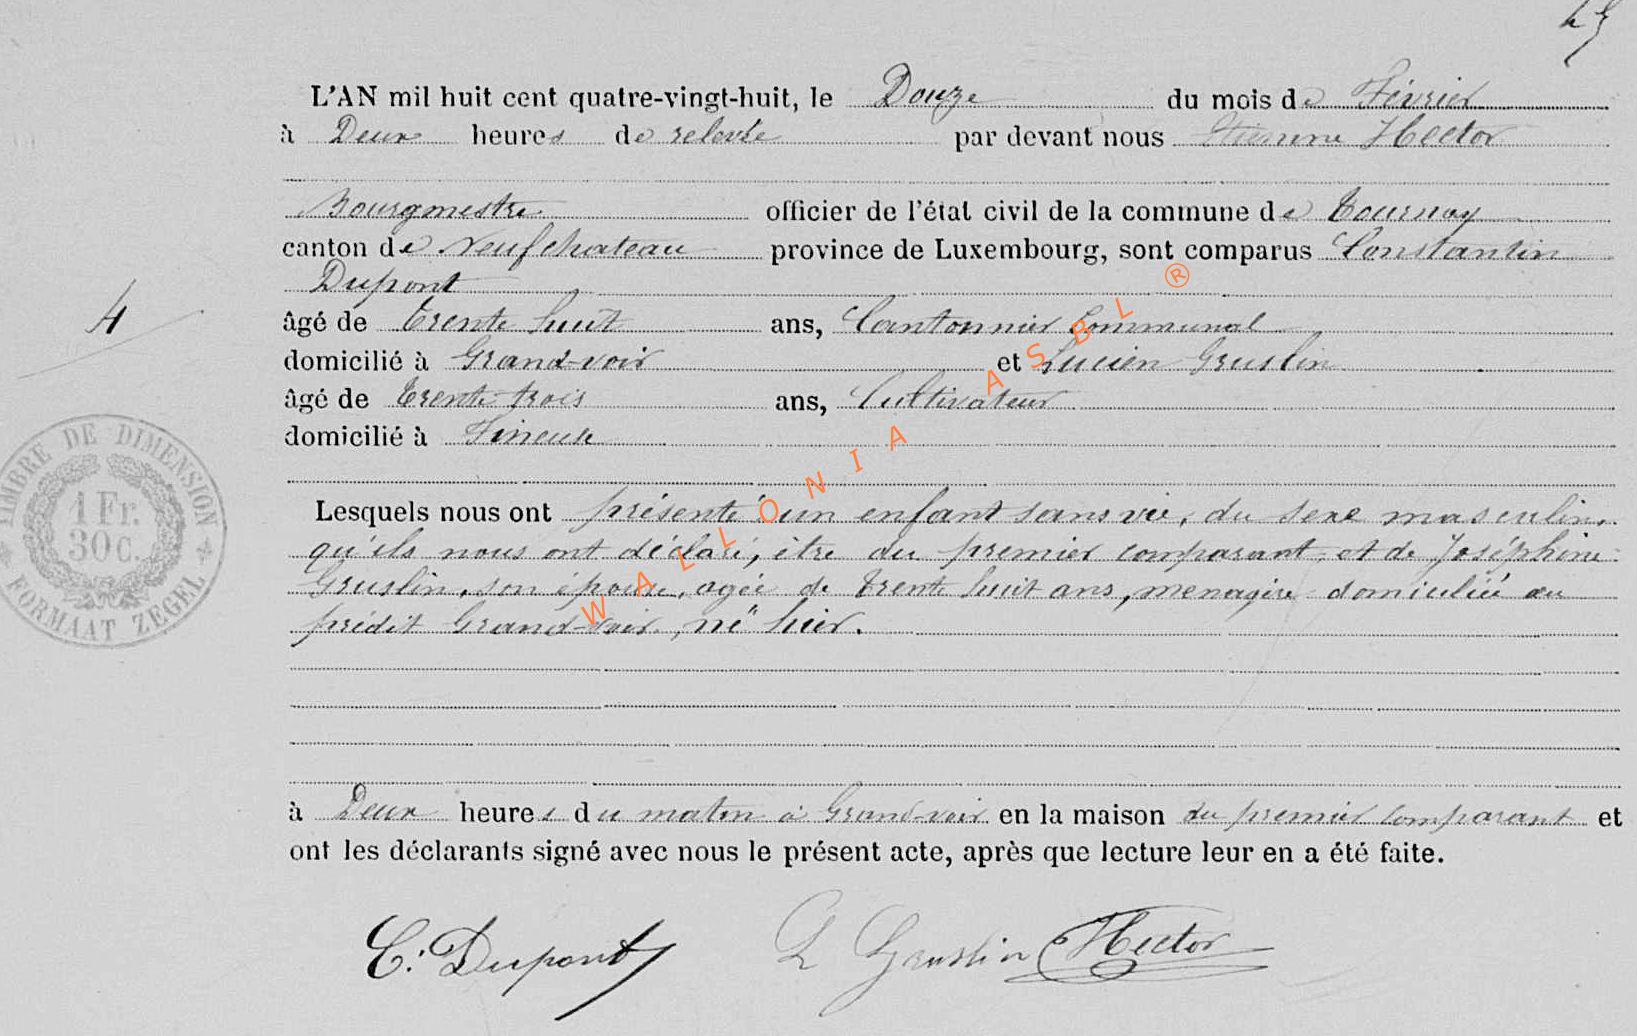 L'AN mil huit cent quatre-vingt-huit, le Douze du mois de Février
à Deux heures de relevée par devant nous Etienne Hector
Bourgmestre officier de l'état civil de la commune de Tournay
canton de Neufchateau province de Luxembourg, sont comparus Constantin
Dupont
âgé de trente huit ans, Cantonnier Communal
domicilié à Grand-voir et Lucien Gruslin
âgé de trente trois ans, Cultivateur
domicilié à Fineuse
4
TIMBRE DE DIMENSION
1 Fr.
30 C.
FORMAAT ZEGEL
Lesquels nous ont présenté un enfant sans vie, du sexe masculin,
qu'ils nous ont déclaré, être du premier comparant, et de Joséphine
Gruslin, son épouse, agée de trente huit ans, menagère domiciliée au
prédit Grand-voir, né hier.
à Deux heures du matin à Grand-voir en la maison du premier comparant et
ont les déclarants signé avec nous le présent acte, après que lecture leur en a été faite.
C. Dupont L Gruslin Hector
WALLONIA ASBL ®